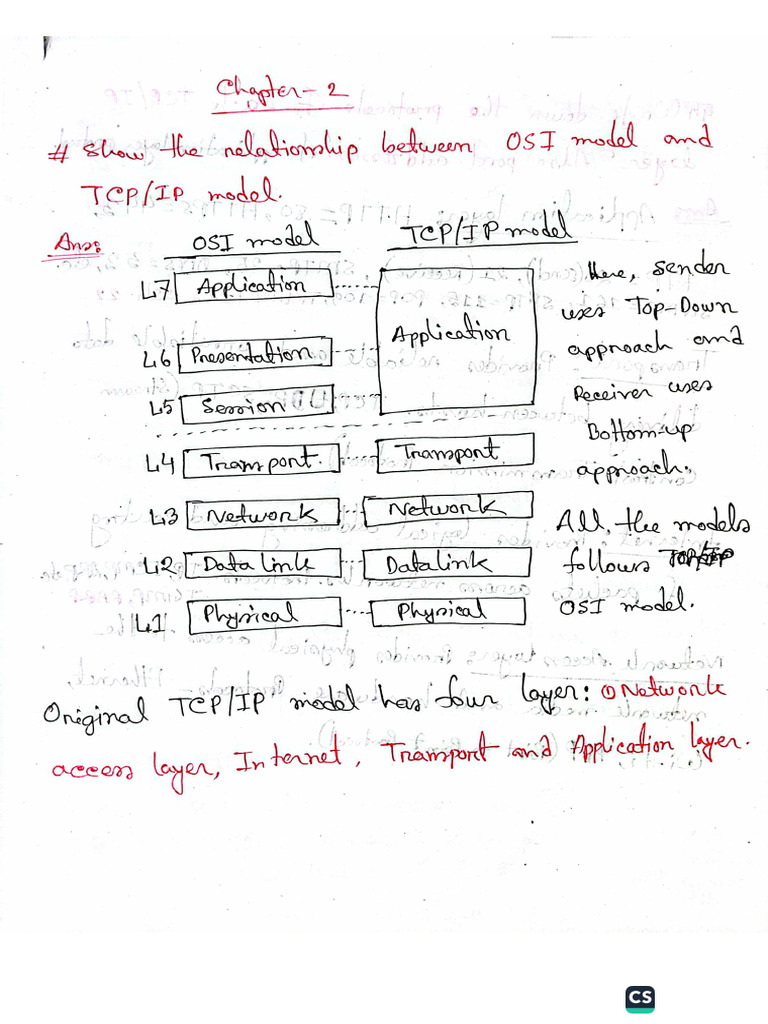 Chapter-2
# Show the relationship between OSI model and
TCP/IP model.
Ans:
OSI model
TCP/IP model
L7 Application
L6 Presentation
L5 Session
Application
L4 Transport.
Transport
L3 Network
Network
L2 Data link
Datalink
L1 Physical
Physical
Here, sender
uses Top-Down
approach and
Receiver uses
Bottom-up
approach.
All the models
follows
OSI model.
Original TCP/IP model has four layer: ① Network
access layer, Internet, Transport and Application layer.
CS